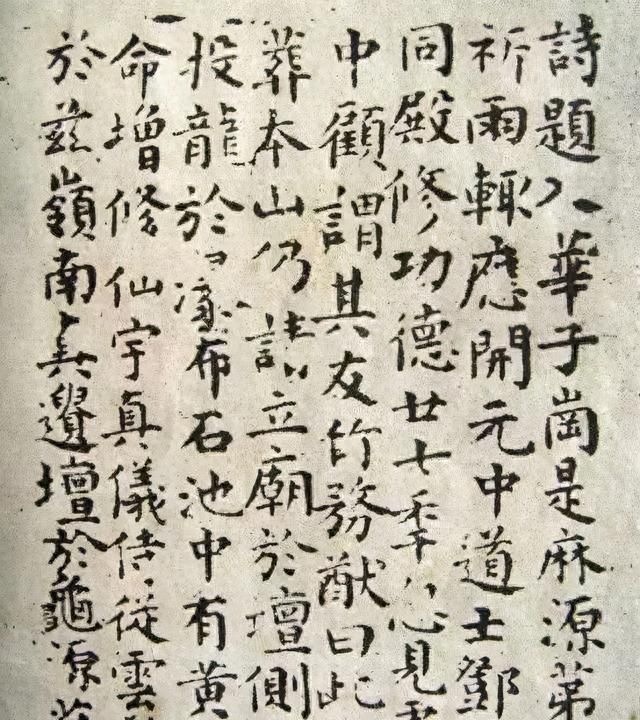 詩題入華子崗是麻源第
祈雨輒應開元中道士鄧
同殿修功德廿七秊忽見
中顧謂其友竹務猷曰此
葬本山仍請立廟於壇側
投龍於瀑布石池中有黃
命增修仙宇真儀侍從雲
於茲嶺南真遺壇於龜源